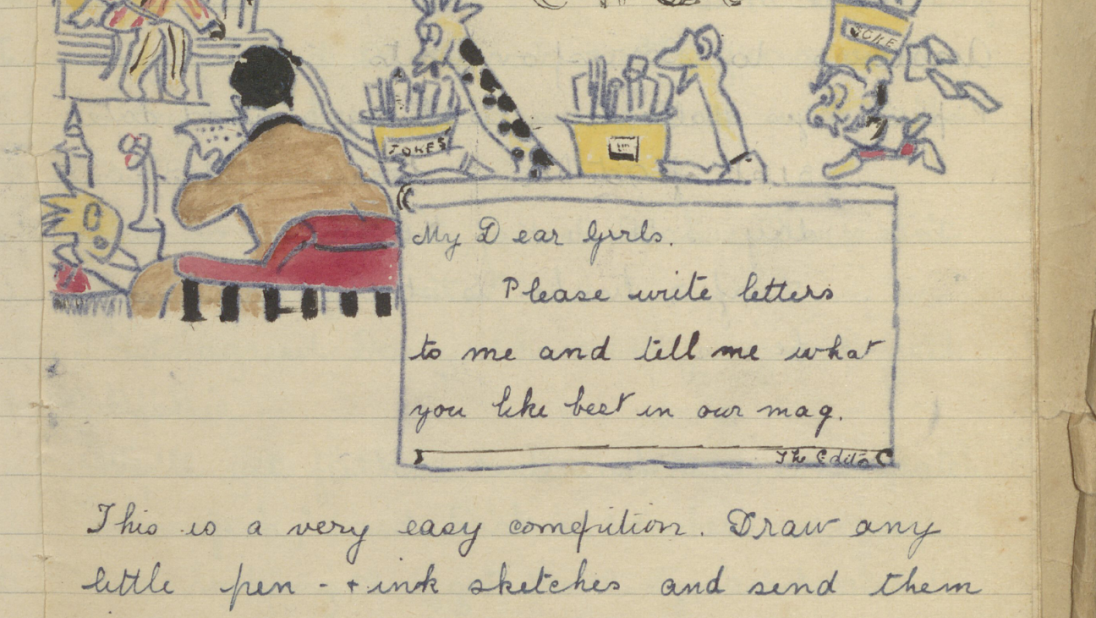 JOKE
JOKES
My Dear Girls.
Please write letters
to me and tell me what
you like best in our mag.
The Editor
This is a very easy compition. Draw any
little pen - + ink sketches and send them